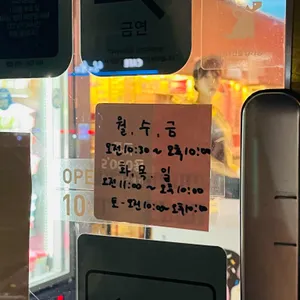 금연
월, 수, 금
오전 10:30 ~ 오후 10:00
화, 목, 일
오전 11:00 ~ 오후 10:00
토 - 오전 10:00 ~ 오후 10:00
OPE
10